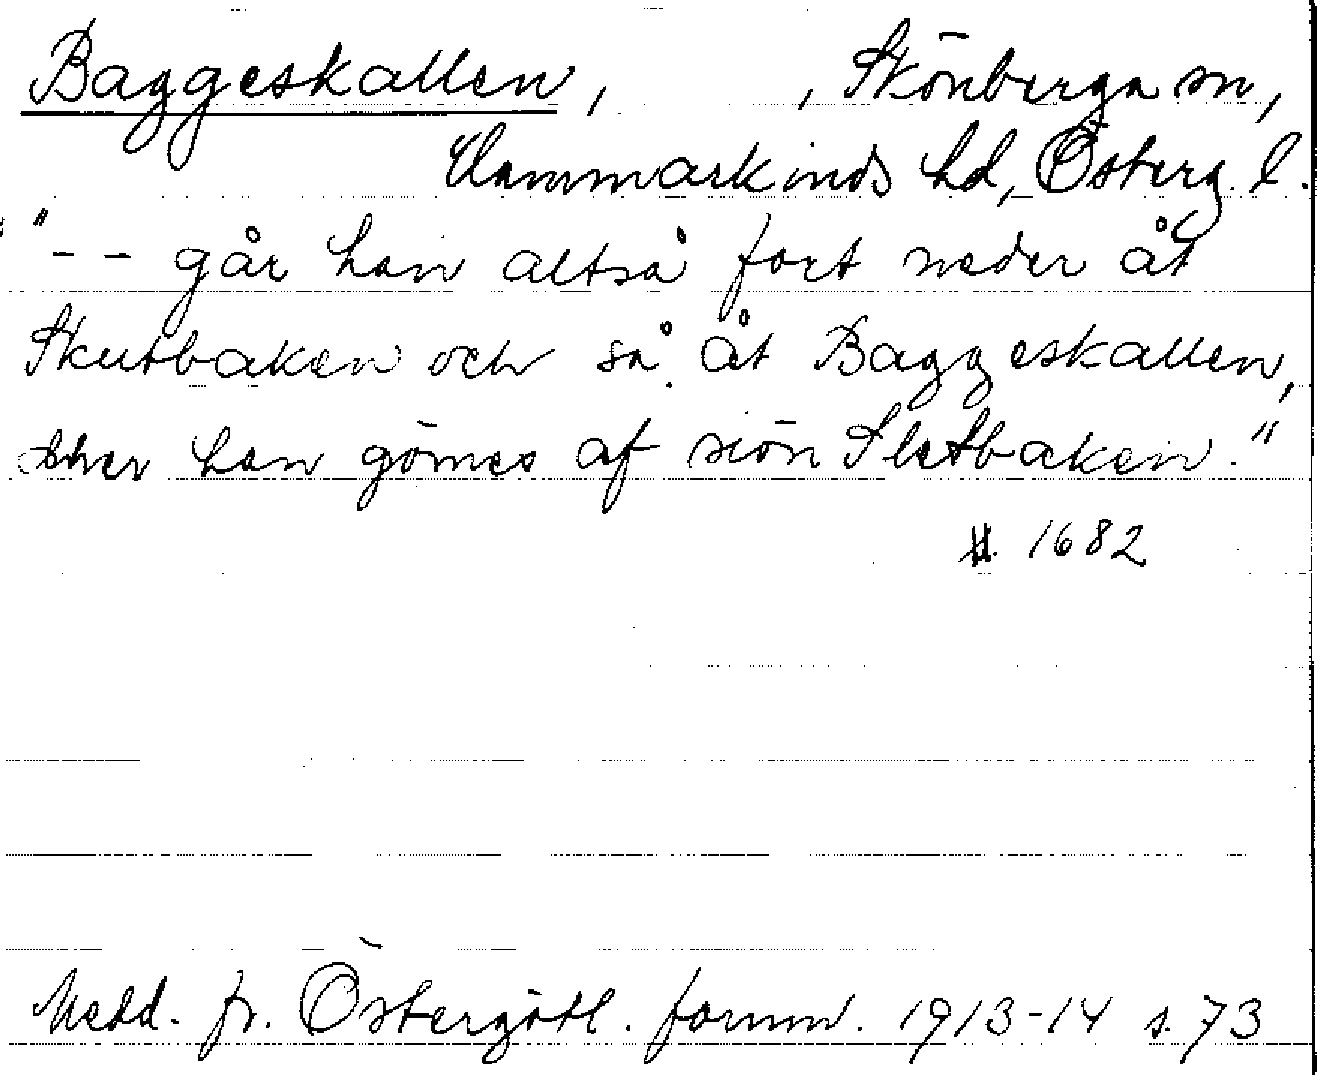 Baggeskallen, , Skönberga sn,
Hammarkinds hd, Österg. l.
"-- går han altså fort neder åt
Skutbaken och så åt Baggeskallen,
ther han gömes af siön Sletbaken."
1682
Medd. fr. Östergötl. fornm. 1913-14 s. 73